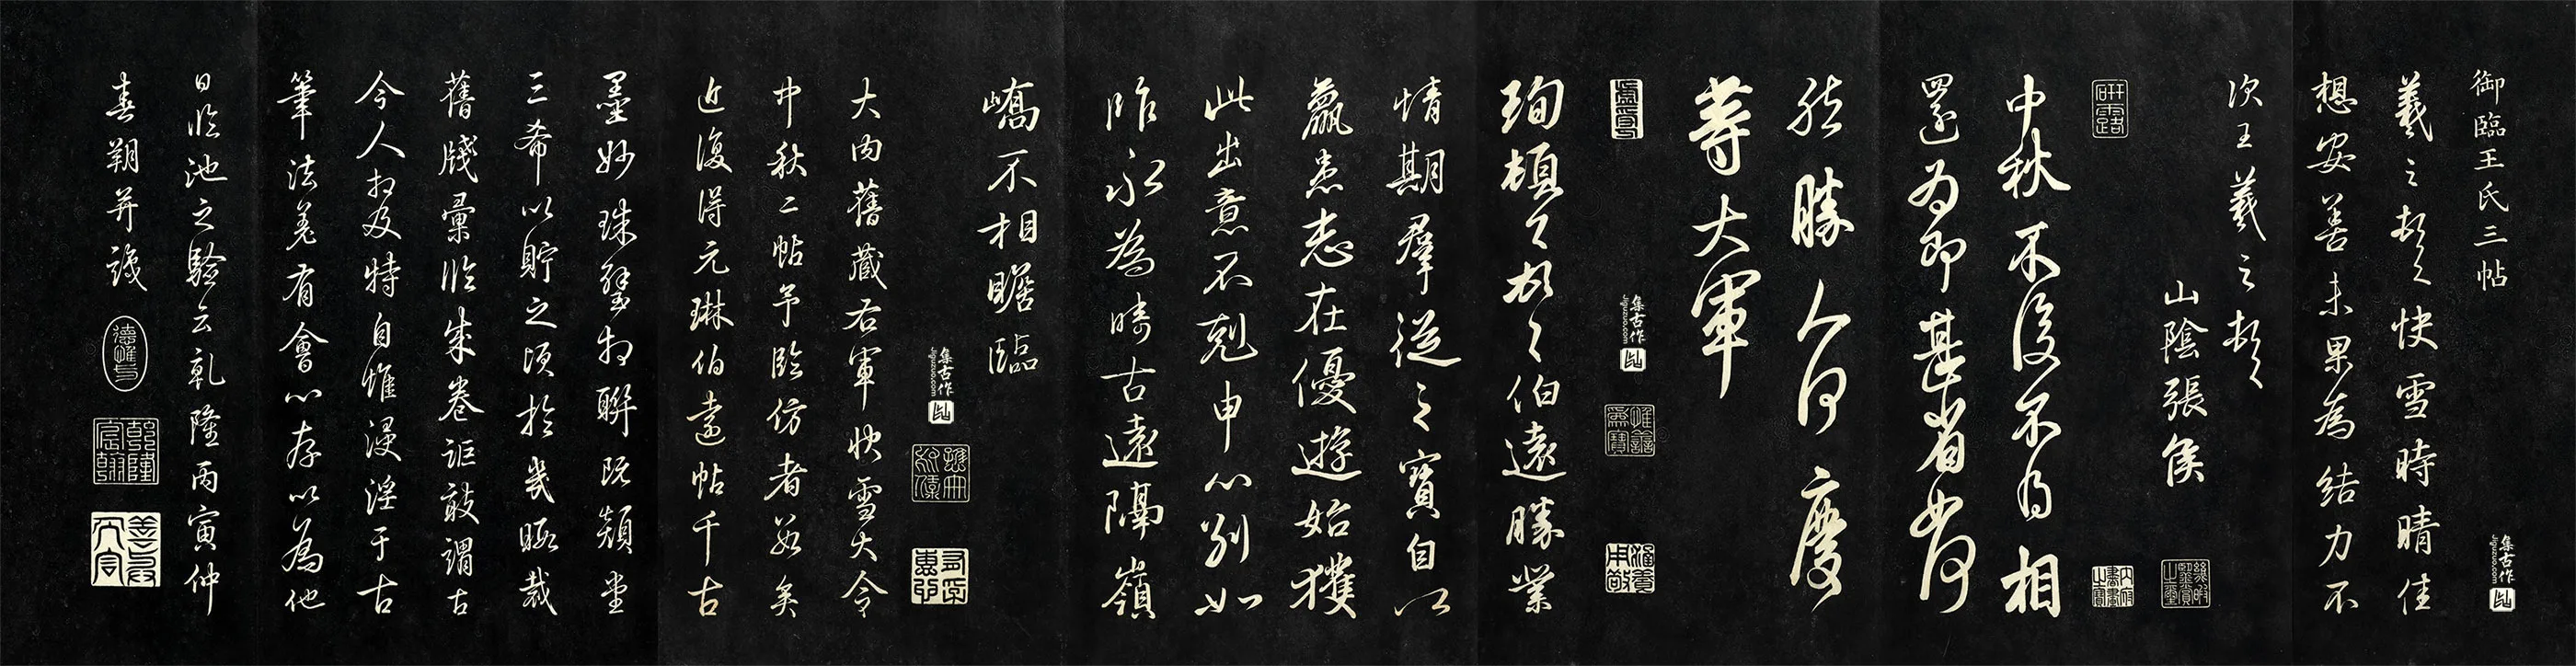 御臨王氏三帖
羲之頓首快雪時晴佳
想安善未果為結力不
次王羲之頓首
山陰張侯
研露
中秋不復不得相
還為即甚省如何
然勝人何慶
等大軍
珣頓首頓首伯遠勝業
情期羣從之寶自以
羸患志在優遊始獲
此出意不剋申以別如
昨永為疇古遠隔嶺
嶠不相瞻臨
大內舊藏右軍快雪大令
中秋二帖予臨仿者數矣
近復得元琳伯遠帖千古
墨妙珠璧相聯既顏堂
三希以貯之頃於幾暇裁
舊牋彙臨成卷詎敢謂古
今人相及特自惟浸淫于古
筆法差有會心存以為他
日臨池之驗云乾隆丙寅仲
春朔并識
乾隆宸翰
集古作
jiguzuo.com
集古作
jiguzuo.com
集古作
jiguzuo.com